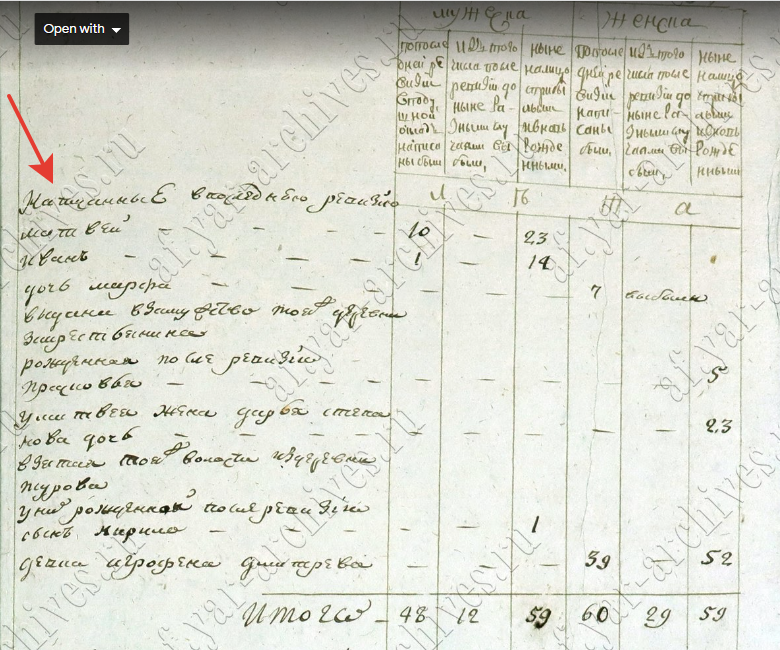 Open with
мужеска
женска
по после
дней ре
визіи
в подушной
написаны были
изъ того
числа после
ревизіи до
ныне разными слу
чаями выбыли,
ныне
на лицо
с прибы
лыми
и вновь
рожде
нными.
по после
дней ре
визіи
напи
саны
были,
изъ того
числа после
ревизіи до
ныне разными слу
чаями вы
были,
ныне
на лицо
с прибы
лыми
и вновь
рожде
нными
Написанные в последнюю ревизию
л ѣ т а
матвей - - - - 10 — 23
Иванъ - - - - 1 — 14
дочь марфа - - - - 7 выбыли
выдана в замужство той деревни
за крестьянина
рожденная после ревизіи
прасковья - - - - 5
у матвея жена дарья степа
нова дочь - - - - 23
взятая той волости из деревни
турова
у них рожденной после ревизіи
сынъ кирило - - - - 1
девка агрофена дмитрева - - - 39 — 52
Итого - 48 12 59 60 29 59
af.yar-archives.ru